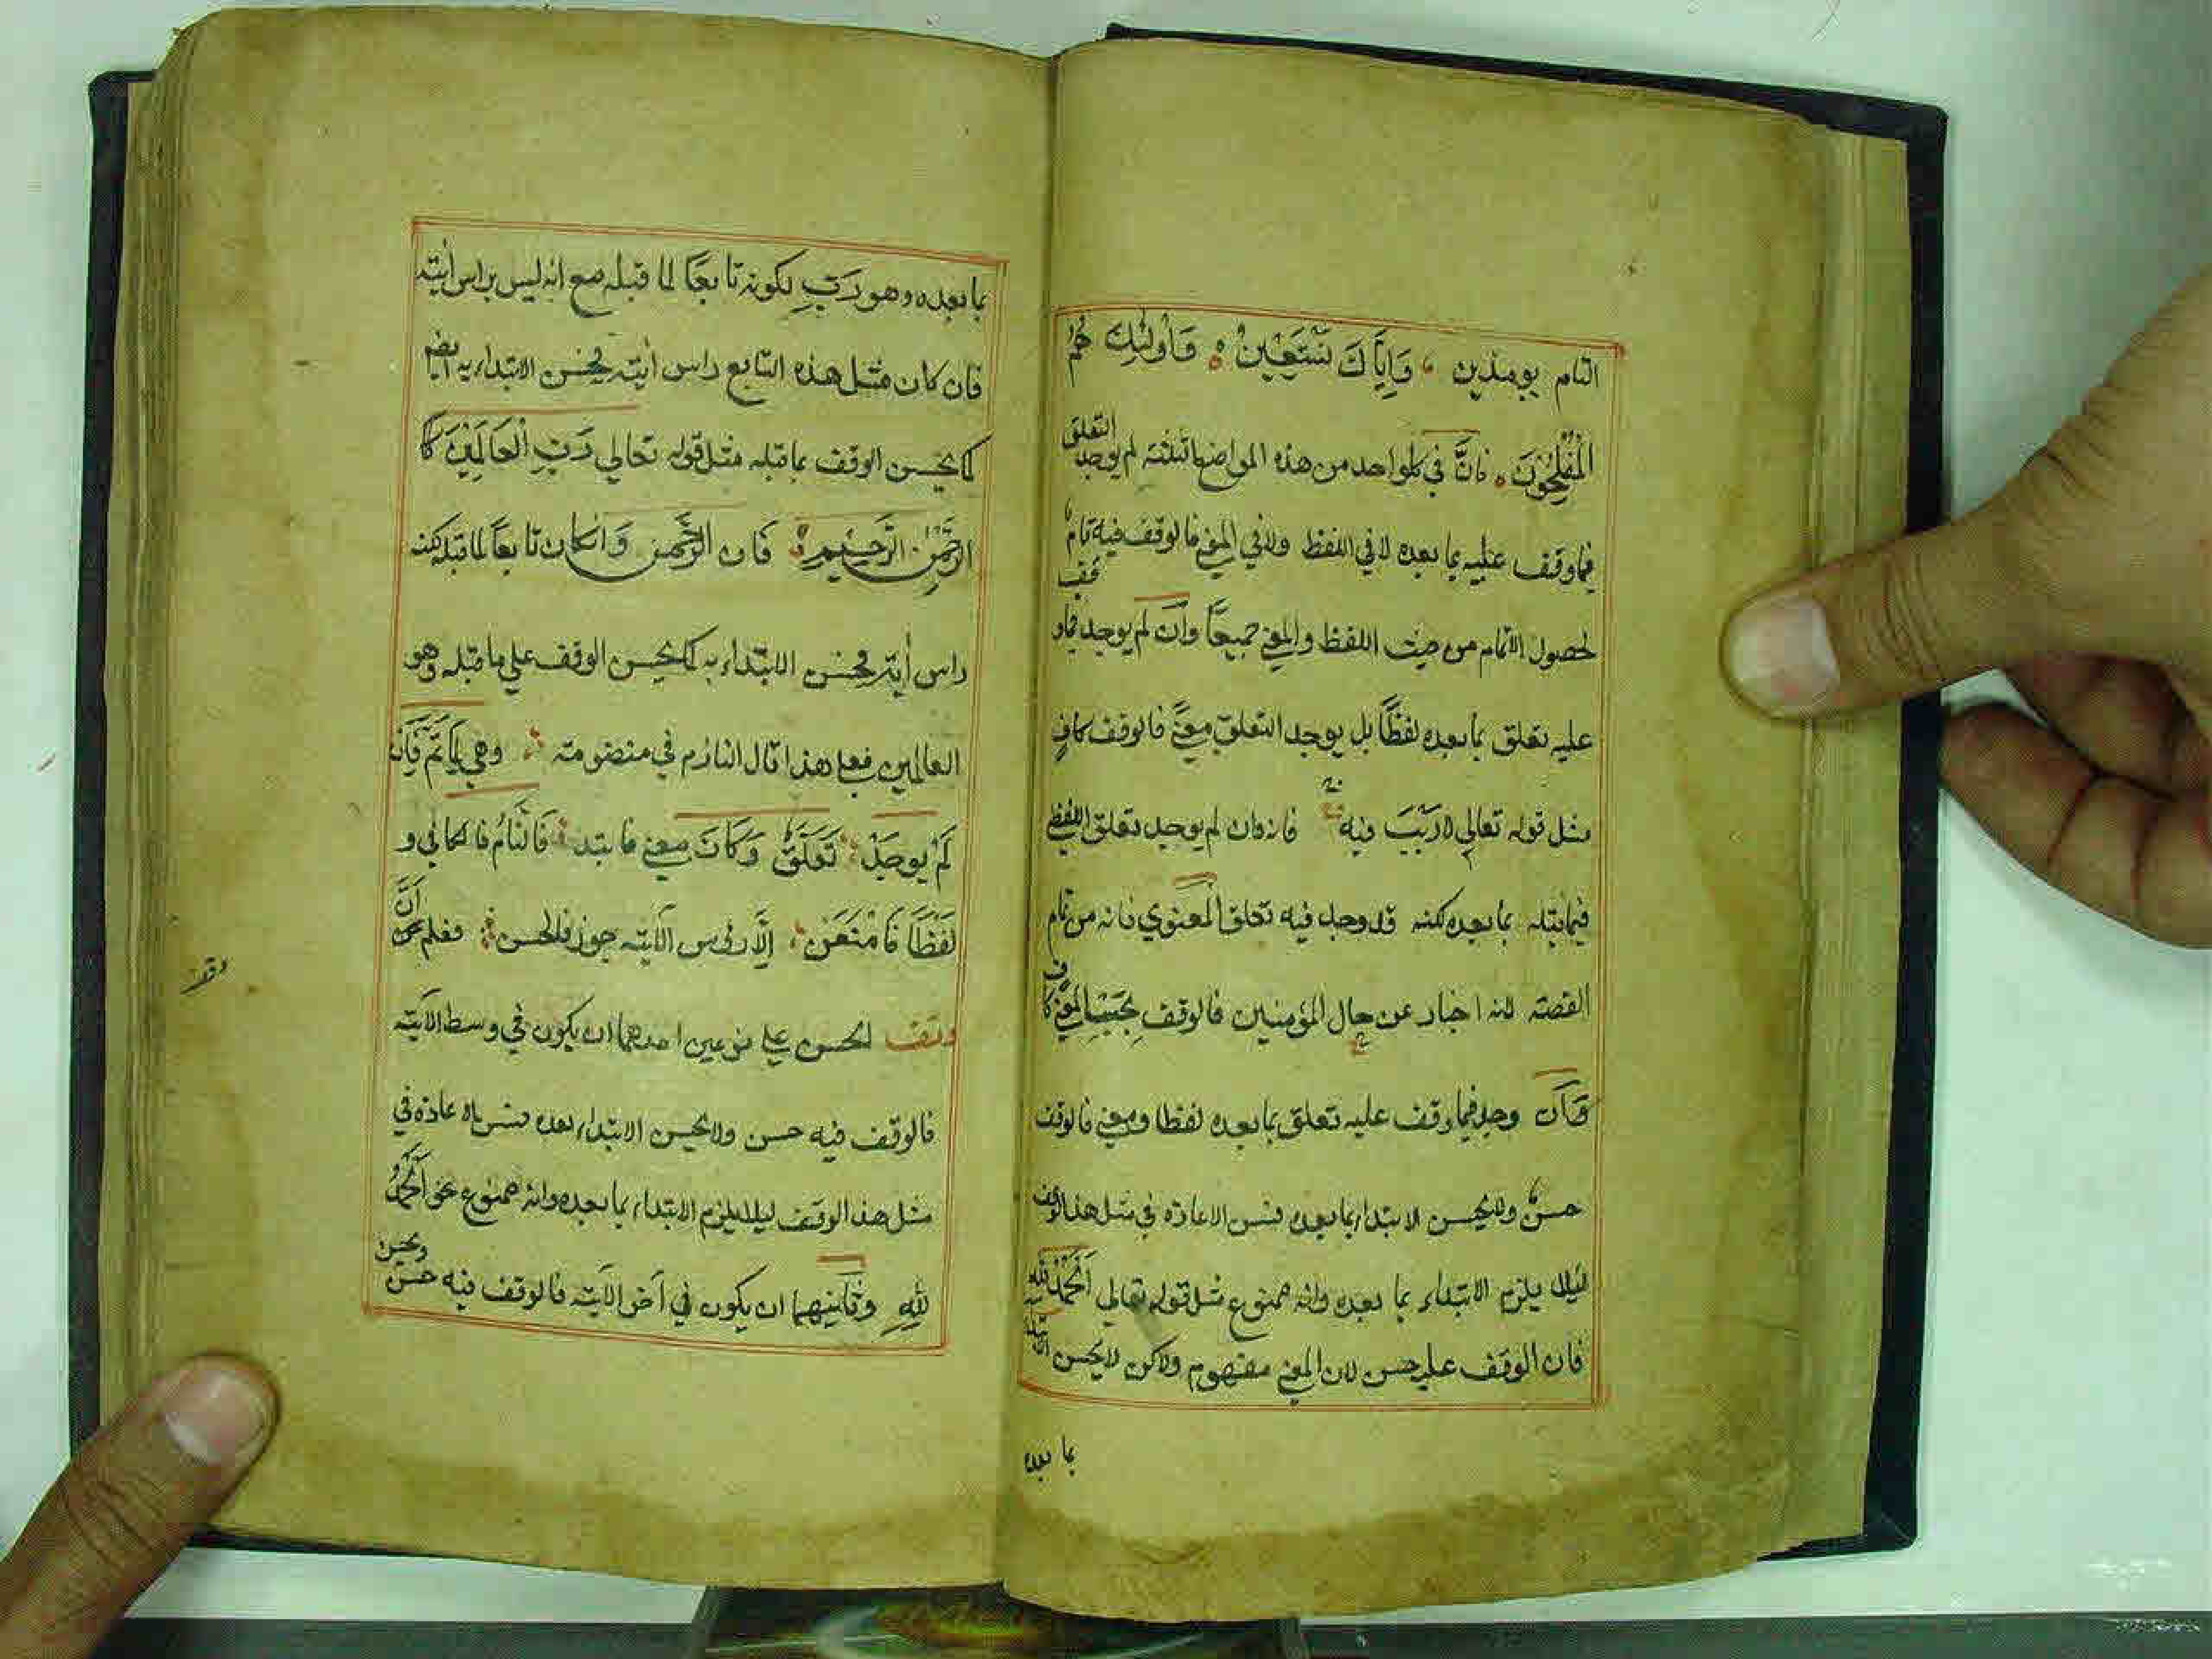 التام يومئذين ، وَاِيَّاكَ نَسْتَعِيْنُ ه وَاُولٰئِكَ هُمُ
الْمُفْلِحُوْنَ ه فانَّ في كلواحد من هذه المواضع الثلثة لم يوجد التعلق
فيما وقف عليه بما بعده لا في اللفظ ولا في المعني فالوقف فيه تامٌ
لحصول الاتمام من حيث اللفظ والمعني جميعًا وَاِن لم يوجد فيما وقف
عليه تعلق بما بعده لفظًا بل يوجد التعلق معنيً فالوقف كافٍ
مثل قوله تعالي لَارَيْبَ فيه فانه وان لم يوجد تعلق اللفظ
فيما قبله بما بعده لكنه قد وجد فيه تعلق المعنوي فانه من تمام
القصته لانه اخبار عن حال المؤمنين فالوقف بِحَسْبِ المعني كافٍ
وَاَن وجد فيما وقف عليه تعلق بما بعده لفظا ومعني فالوقف
حسنٌ ولايحسن الابتداء بما بعده فسن الاعادة في مثل هذا الوقف
ليلا يلزم الابتداء بما بعده وانه ممنوع مثل قوله تعالي اَلْحَمْدُ لِلّٰهِ
فان الوقف عليه حسن لان المعني مفهوم ولاكن لايحسن الابتداء
بما بعده
بما بعده وهو رَبِّ لكونه تابعًا لما قبله مع انه ليس براس اٰيته
فان كان مثل هذه التابع راس اٰيته يحسن الابتداء به ايضًا
كما يحسن الوقف بما قبله مثل قوله تعالي رَبِّ الْعَالَمِيْنَ كا
الرَّحْمٰنِ الرَّحِيْمِ ه فَان الرَّحْمٰن وَانكان تابعاً لما قبله لكنه
راس اٰيته فيحسن الابتداء به كما يحسن الوقف علي ما قبله وهو
العالمين فعلي هذا قال الناظم في منضومته وهي لِمَا تَمَّ فَاِنْ
لَمْ يوجَدْ تَعَلُّقٌ وَكَانَ معني فابتد فَالتَّامُ فالكافي و
لَفْظًا فَامْنَعَنْ اِلَّا رؤس الآيته جوز فالحسن فعلم من اَنَّ
وقف الحسن علي نوعين احدهما ان يكون في وسط الآيته
وقف
فالوقف فيه حسن ولايحسن الابتداء بعده فسن الاعادة في
مثل هذ الوقف ليلا يلزم الابتداء بما بعده وانه ممنوع نحو اَلْحَمْدُ
لِلّٰهِ وثَانيهما ان يكون في آخر الآيته فالوقف فيه حسن ويحسن